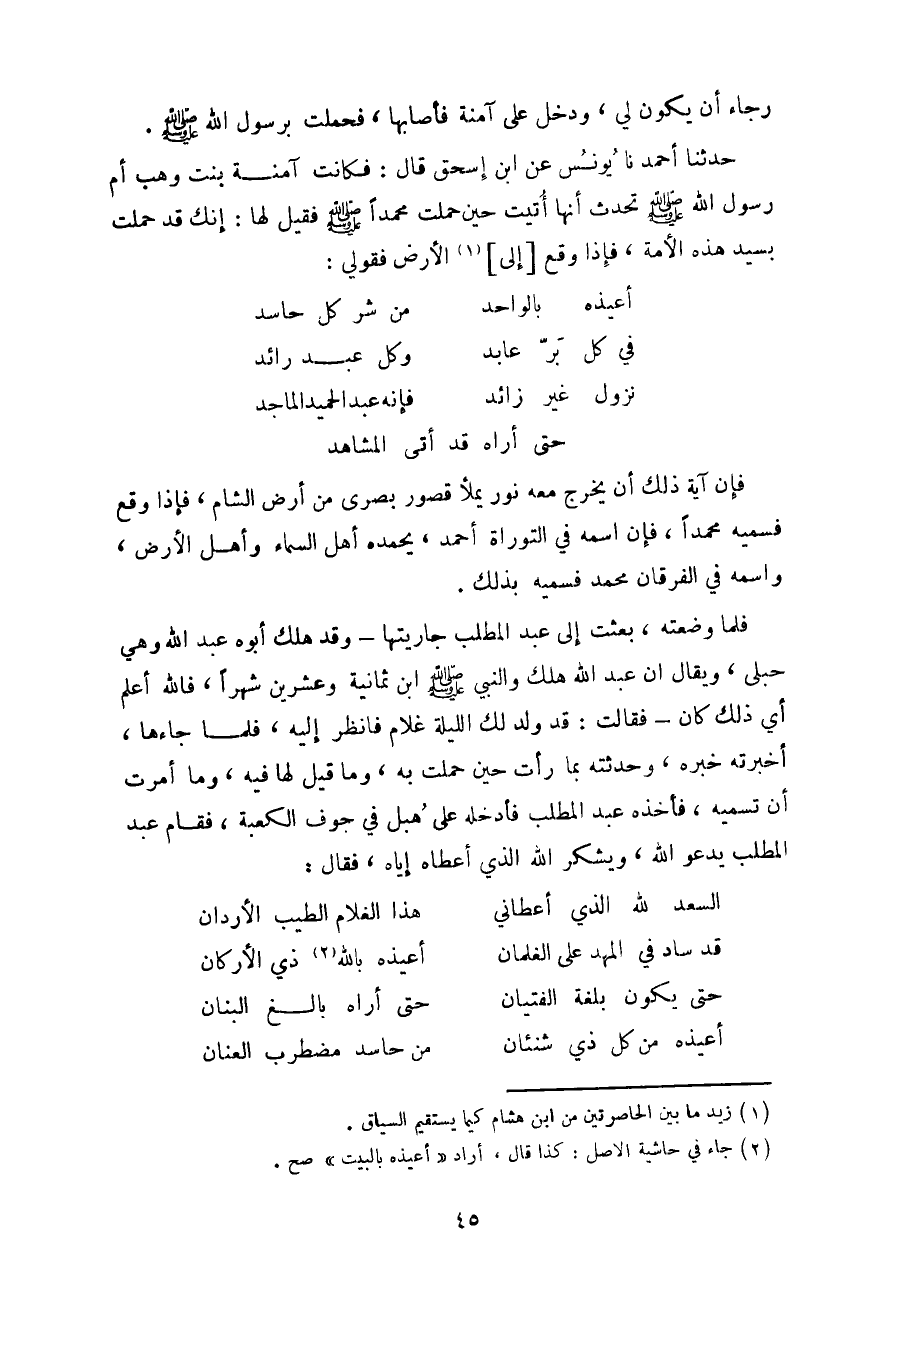 رجاء أن يكون لي ، ودخل على آمنة فأصابها ، فحملت برسول الله ﷺ .
حدثنا أحمد نا يُونُس عن ابن إسحق قال : فكانت آمنة بنت وهب أم
رسول الله ﷺ تحدث أنها أُتيت حين حملت محمداً ﷺ فقيل لها : إنك قد حملت
بسيد هذه الأمة ، فإذا وقع [إلى] (١) الأرض فقولي :
أعيذه بالواحد من شر كل حاسد
في كل بَرّ عابد وكل عبد رائد
نزول غير زائد فإنه عبد الحميد الماجد
حتى أراه قد أتى المشاهد
فإن آية ذلك أن يخرج معه نور يملأ قصور بصرى من أرض الشام ، فإذا وقع
فسميه محمداً ، فإن اسمه في التوراة أحمد ، يحمده أهل السماء وأهل الأرض ،
واسمه في الفرقان محمد فسميه بذلك .
فلما وضعته ، بعثت إلى عبد المطلب جاريتها – وقد هلك أبوه عبد الله وهي
حبلى ، ويقال ان عبد الله هلك والنبي ﷺ ابن ثمانية وعشرين شهراً ، فالله أعلم
أي ذلك كان – فقالت : قد ولد لك الليلة غلام فانظر إليه ، فلما جاءها ،
أخبرته خبره ، وحدثته بما رأت حين حملت به ، وما قيل لها فيه ، وما أمرت
أن تسميه ، فأخذه عبد المطلب فأدخله على هُبل في جوف الكعبة ، فقام عبد
المطلب يدعو الله ، ويشكر الله الذي أعطاه إياه ، فقال :
السعد لله الذي أعطاني هذا الغلام الطيب الأردان
قد ساد في المهد على الغلمان أعيذه بالله (٢) ذي الأركان
حتى يكون بلغة الفتيان حتى أراه بالغ البنان
أعيذه من كل ذي شنئان من حاسد مضطرب العنان
(١) زيد ما بين الحاصرتين من ابن هشام كيما يستقيم السياق .
(٢) جاء في حاشية الاصل : كذا قال ، أراد « أعيذه بالبيت » صح .
٤٥